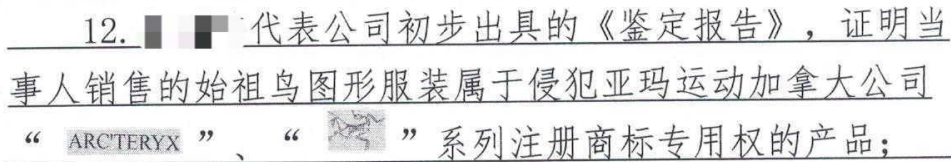 12. 代表公司初步出具的《鉴定报告》，证明当
事人销售的始祖鸟图形服装属于侵犯亚玛运动加拿大公司
“ ARC'TERYX ”、“ ”系列注册商标专用权的产品；